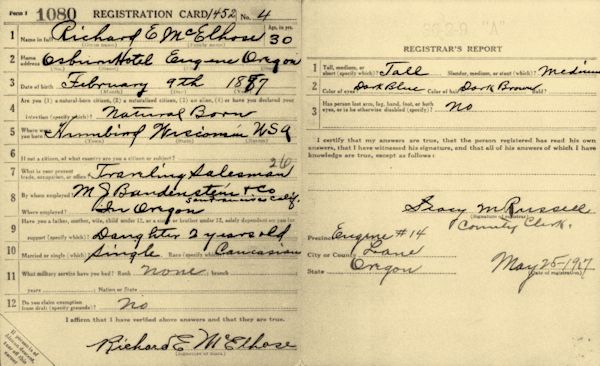 Form 1 1080 REGISTRATION CARD 1452 No. 4
1 Name in full Richard E McElhose Age, in yrs. 30
(Given name) (Family name)
2 Home address Osburn Hotel Eugene Oregon
3 Date of birth February 9th 1887
(Month) (Day) (Year)
4 Are you (1) a natural-born citizen, (2) a naturalized citizen, (3) an alien, (4) or have you declared your
intention (specify which)? Natural Born
5 Where were you born? Humbird Wisconsin USA
(Town) (State) (Nation)
6 If not a citizen, of what country are you a citizen or subject?
7 What is your present trade, occupation, or office? Traveling Salesman 26
8 By whom employed? M J Brandenstein & Co
San Francisco Calif.
Where employed? In Oregon
9 Have you a father, mother, wife, child under 12, or a sister or brother under 12, solely dependent on you for
support (specify which)? Daughter 2 years old
10 Married or single (which)? Single Race (specify which)? Caucasian
11 What military service have you had? Rank none branch
years Nation or State
12 Do you claim exemption from draft (specify grounds)? No
I affirm that I have verified above answers and that they are true.
Richard E. McElhose
(Signature or mark)
If person is of African descent, tear off this corner
"A"
REGISTRAR'S REPORT
1 Tall, medium, or short (specify which)? Tall Slender, medium, or stout (which)? Medium
2 Color of eyes? Dark Blue Color of hair? Dark Brown Bald?
3 Has person lost arm, leg, hand, foot, or both eyes, or is he otherwise disabled (specify)? No
I certify that my answers are true, that the person registered has read his own
answers, that I have witnessed his signature, and that all of his answers of which I have
knowledge are true, except as follows:
Stacy M Russell
(Signature of registrar)
County Clerk.
Precinct Eugene #14
City or County Lane
State Oregon
May 25-1917
(Date of registration)